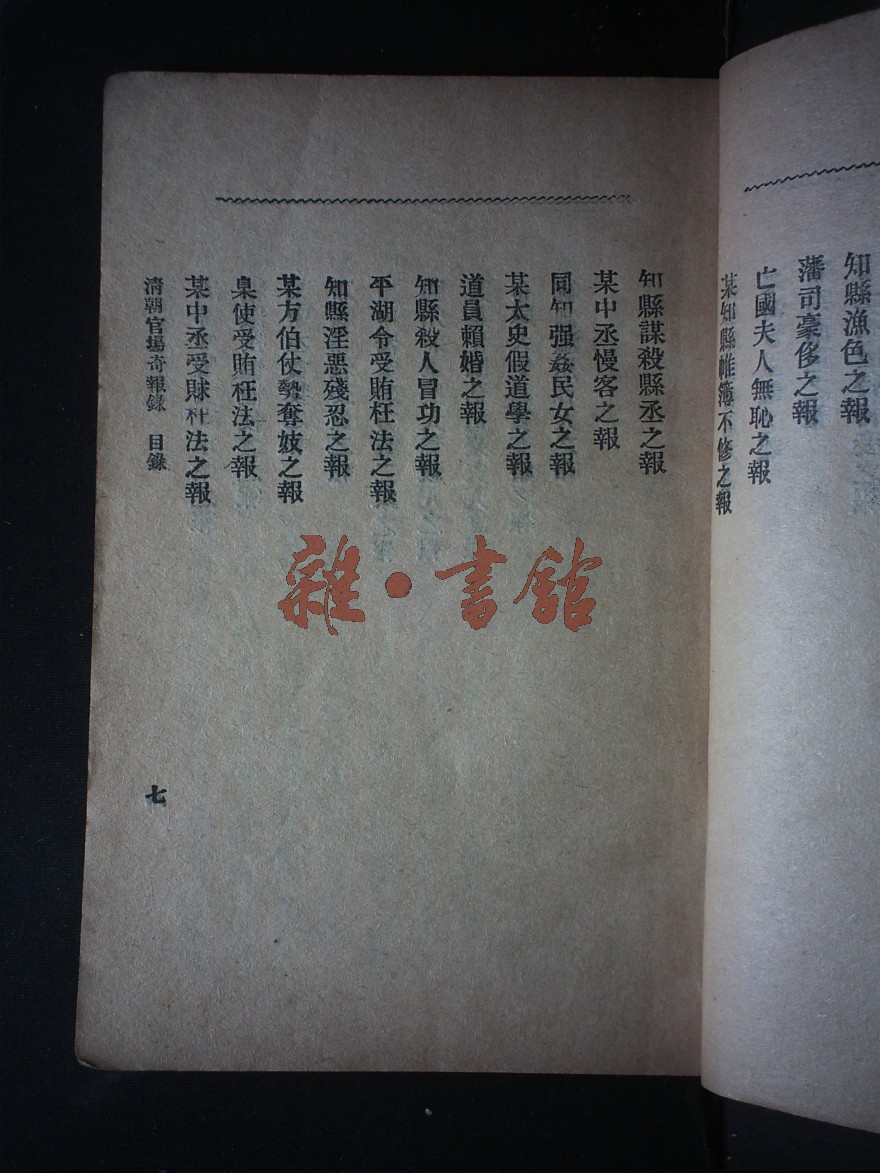 知縣漁色之報
藩司豪侈之報
亡國夫人無恥之報
某知縣帷簿不修之報
知縣謀殺縣丞之報
某中丞慢客之報
同知强姦民女之報
某太史假道學之報
道員賴婚之報
知縣殺人冒功之報
平湖令受賄枉法之報
知縣淫惡殘忍之報
某方伯仗勢奪妓之報
臬使受賄枉法之報
某中丞受賕枉法之報
清朝官場奇報錄 目錄
七
雜·書館